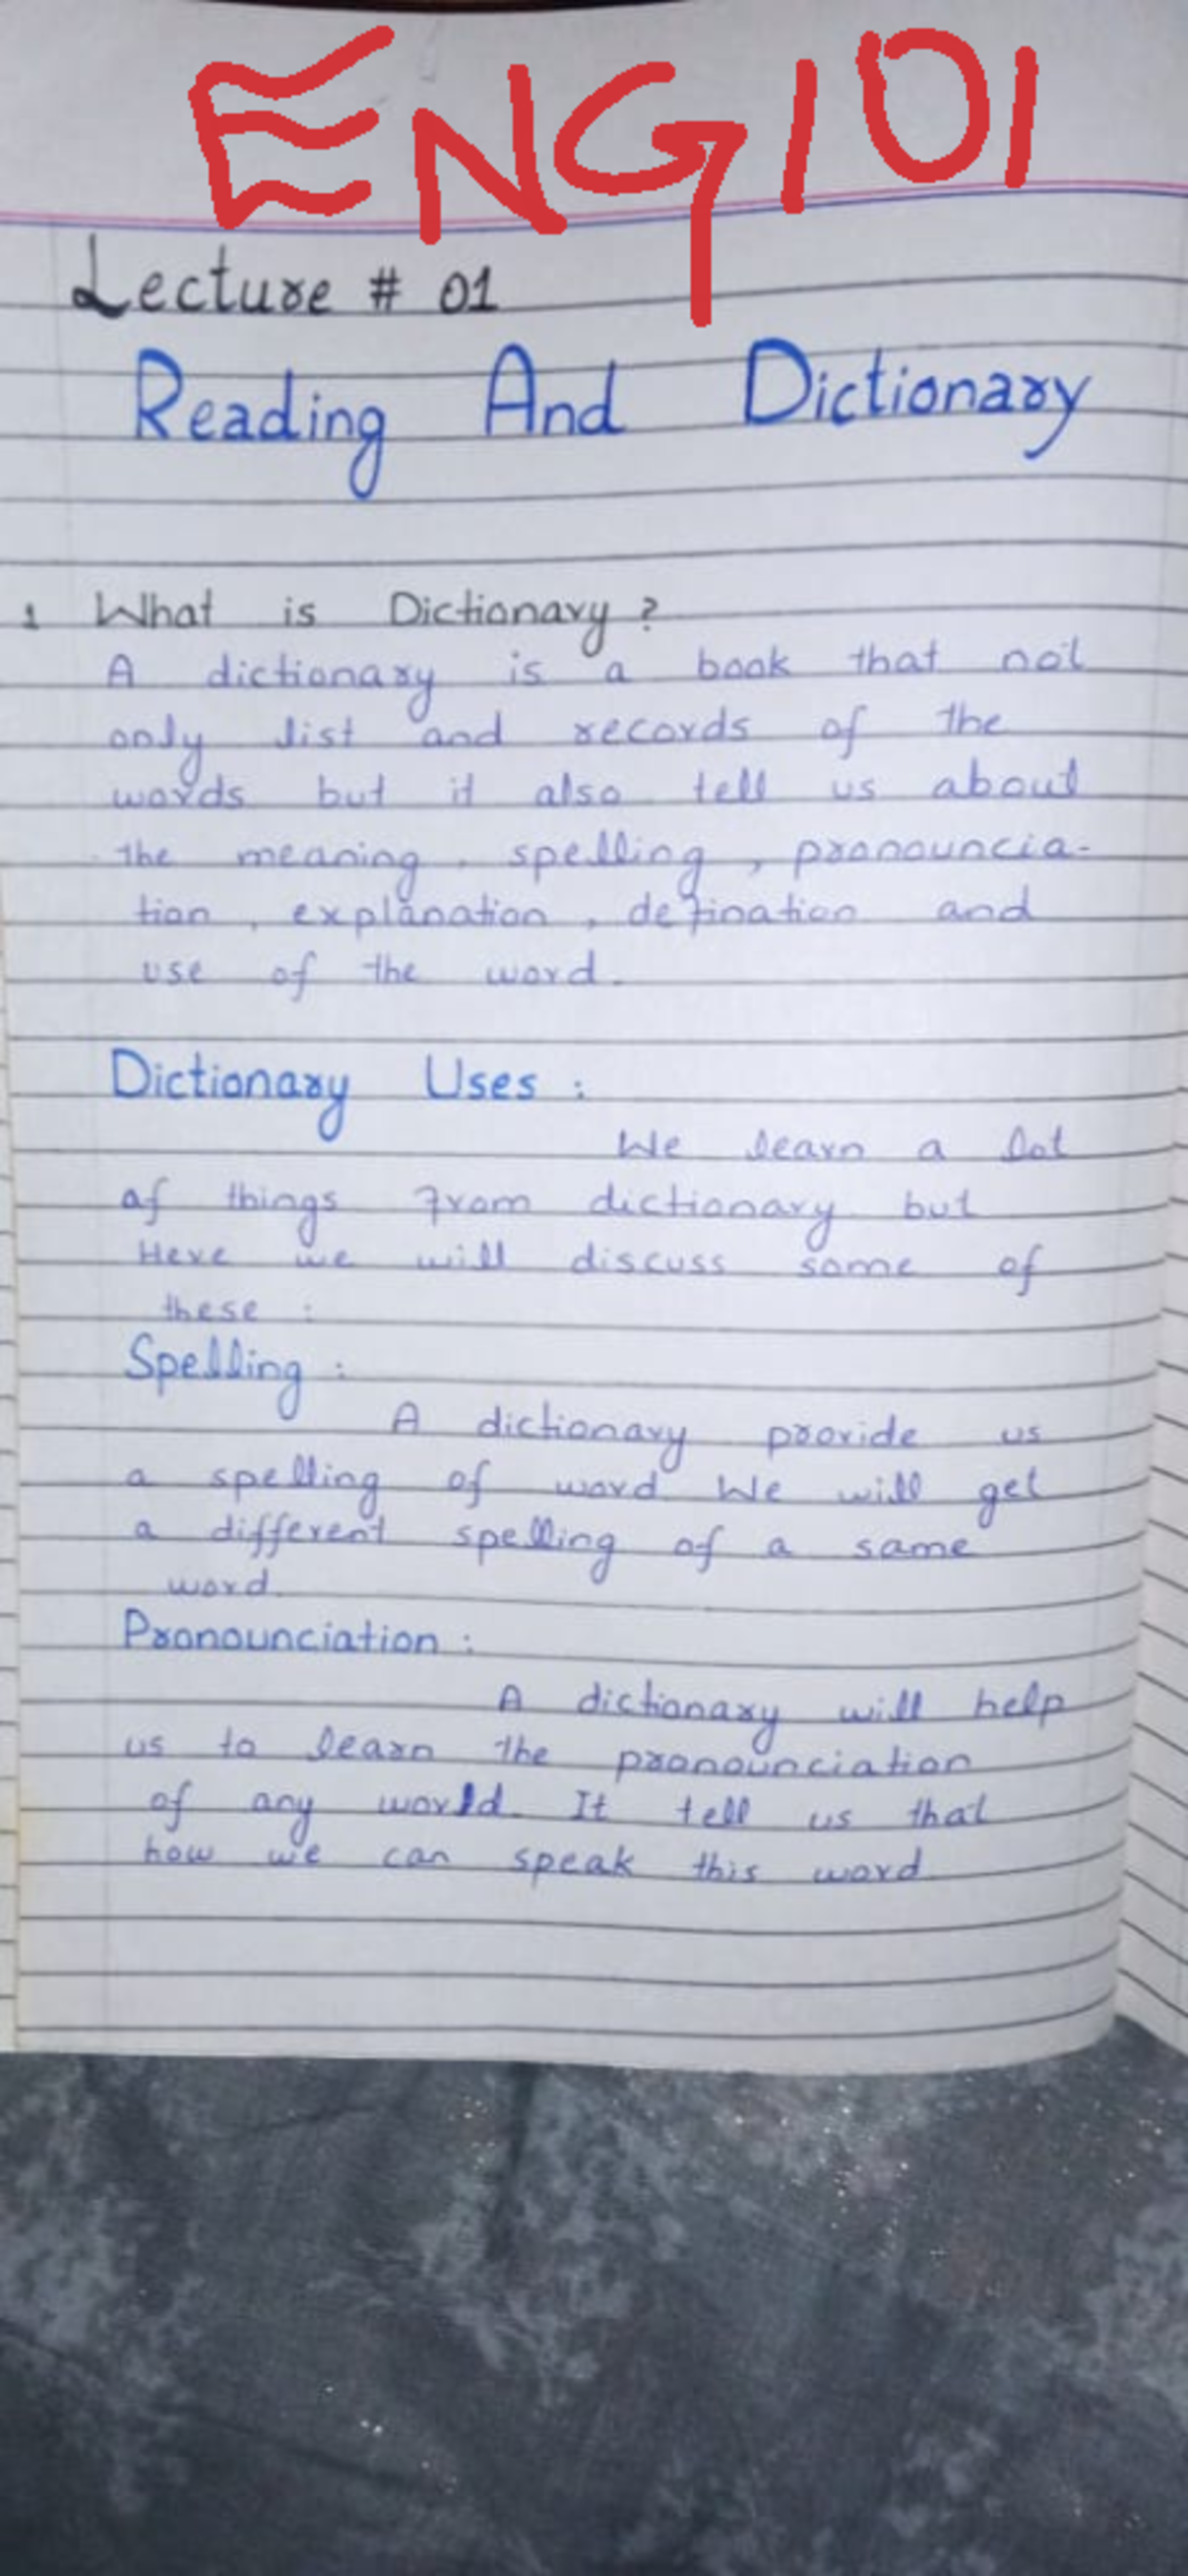 ENG101
Lecture # 01
Reading And Dictionary
1 What is Dictionary?
A dictionary is a book that not
only list and records of the
words but it also tell us about
the meaning, spelling, pronouncia-
tion, explanation, defination and
use of the word.
Dictionary Uses:
We learn a lot
of things from dictionary but
Here we will discuss some of
these:
Spelling:
A dictionary provide us
a spelling of word We will get
a different spelling of a same
word.
Pronounciation:
A dictionary will help
us to learn the pronounciation
of any world. It tell us that
how we can speak this word